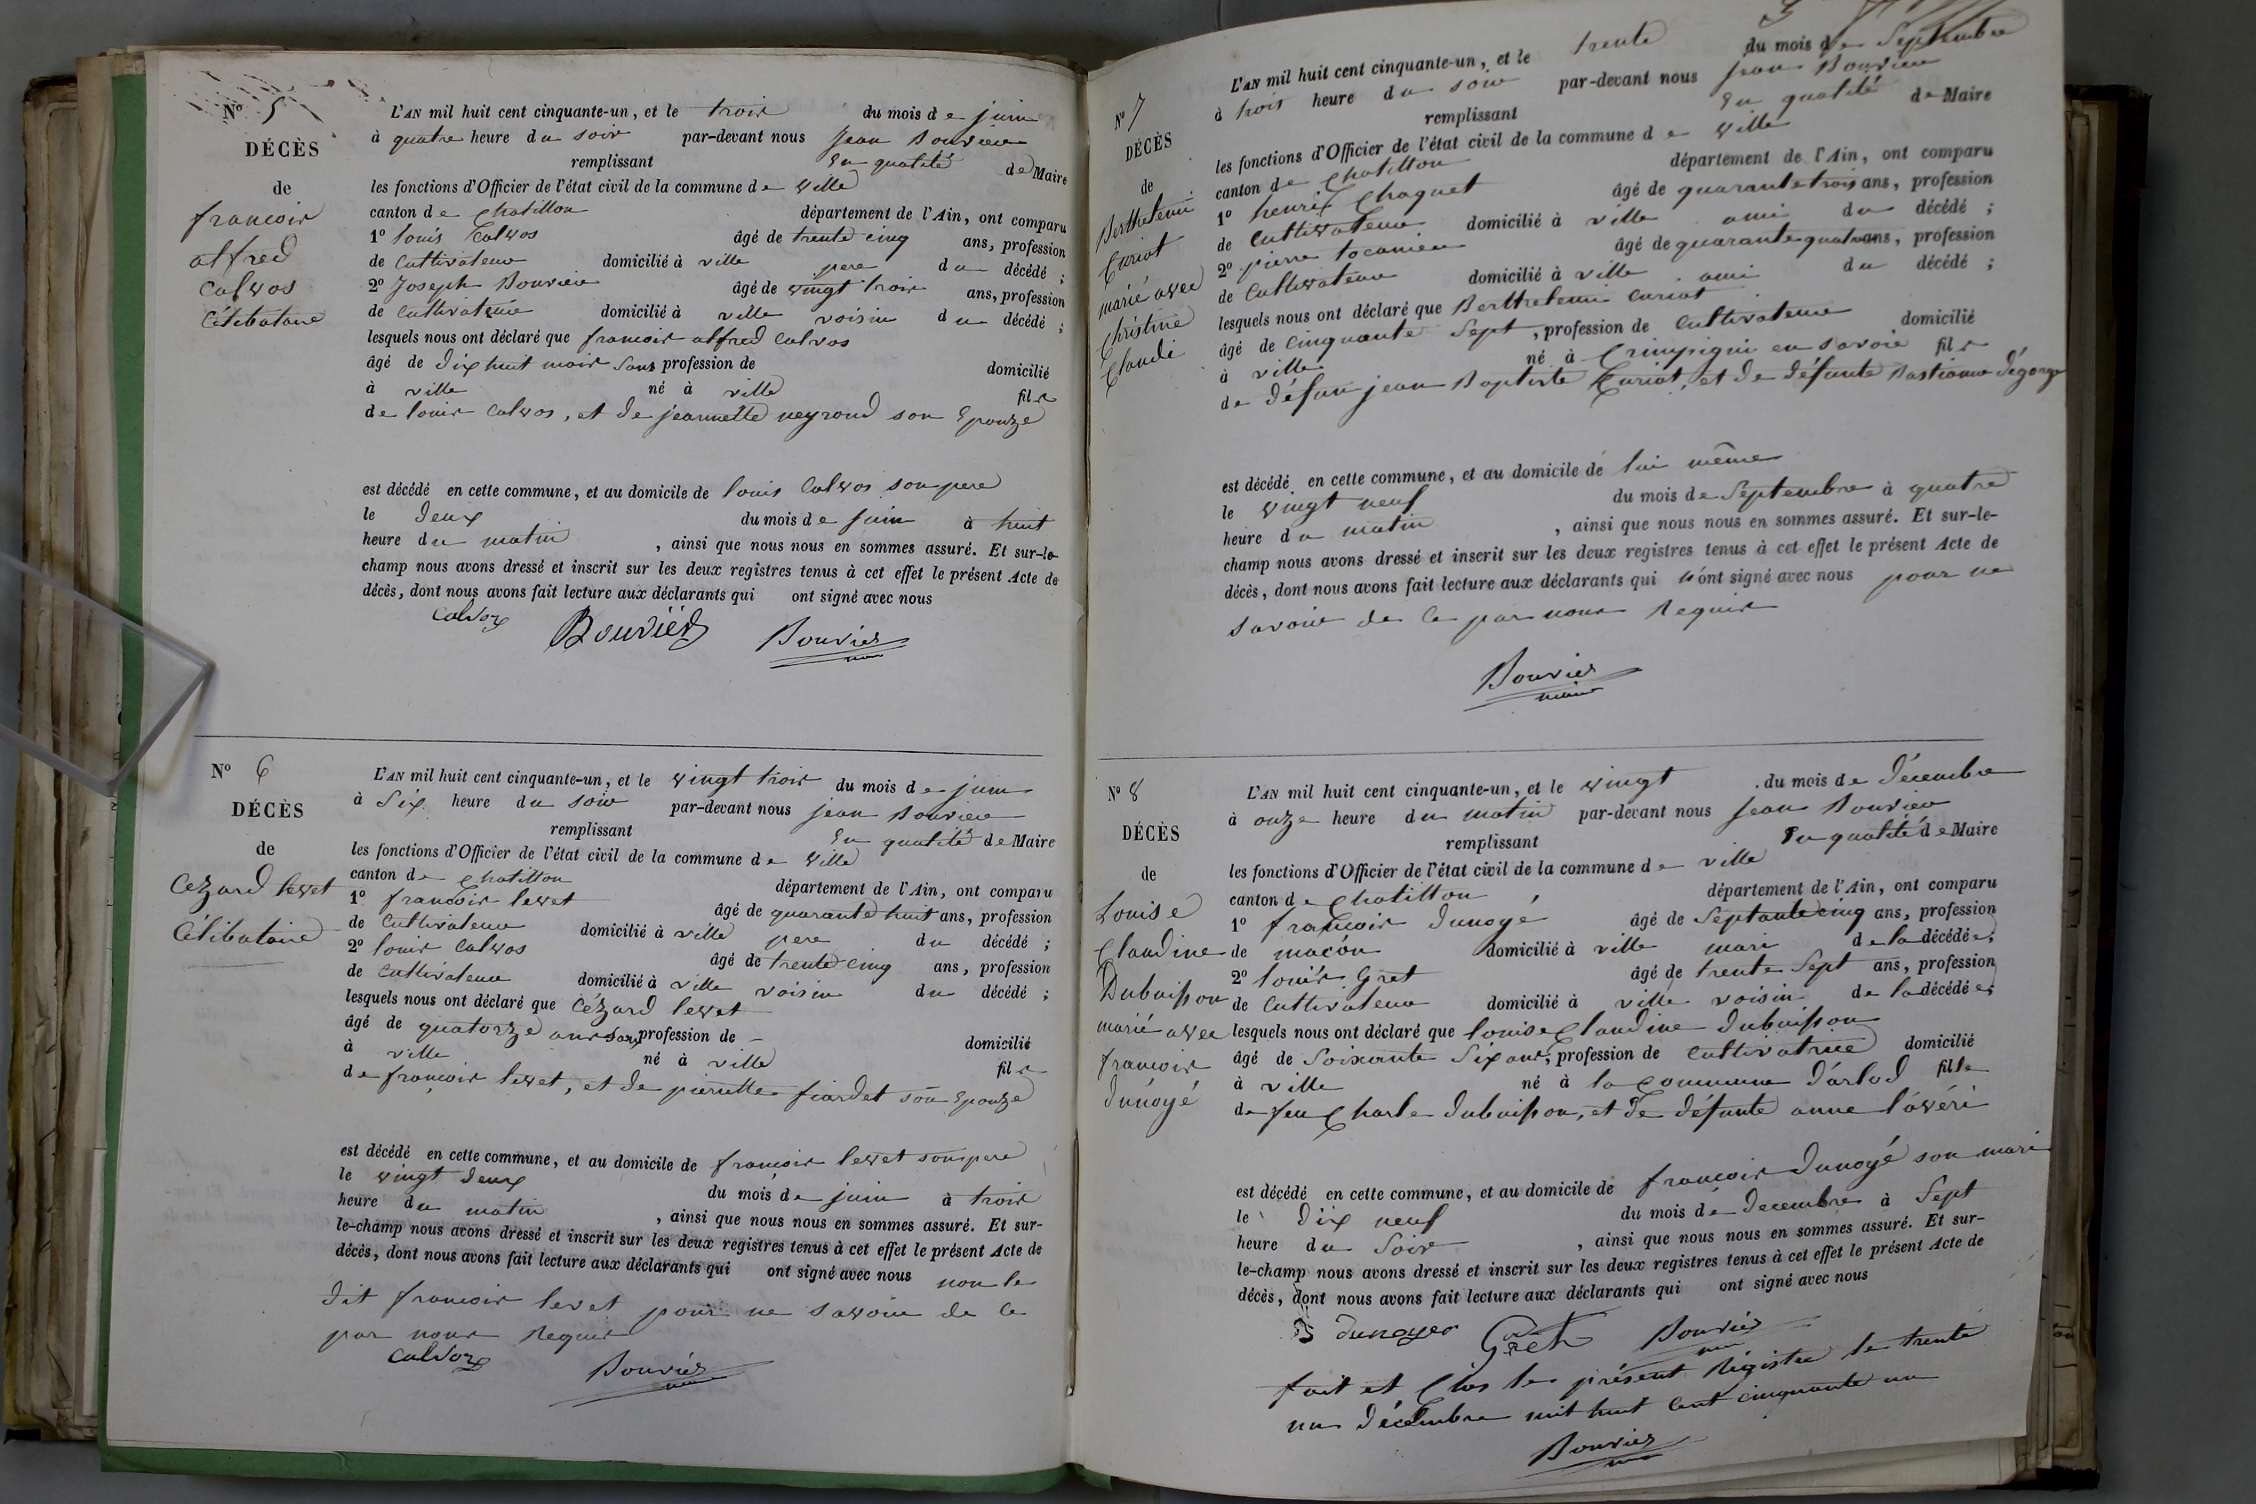 Nº 5
DÉCÈS
de
francois
alfred
Calvos
Célibataire
L'AN mil huit cent cinquante-un, et le trois du mois de juin
à quatre heure du soir par-devant nous Jean Bouvier
remplissant En qualité de Maire
les fonctions d'Officier de l'état civil de la commune de ville
canton de Chatillon département de l'Ain, ont comparu
1º louis Calvos âgé de trente cinq ans, profession
de Cultivateur domicilié à ville pere du décédé ;
2º Joseph Bouvier âgé de vingt trois ans, profession
de Cultivateur domicilié à ville voisin du décédé ;
lesquels nous ont déclaré que francois alfred Calvos
âgé de dix huit mois sans profession de domicilié
à ville né à ville fils
de louis Calvos, et de jeannette neyroud son Epouze
est décédé en cette commune, et au domicile de louis Calvos son pere
le deux du mois de juin à huit
heure du matin, ainsi que nous nous en sommes assuré. Et sur-le-
champ nous avons dressé et inscrit sur les deux registres tenus à cet effet le présent Acte de
décès, dont nous avons fait lecture aux déclarants qui ont signé avec nous
Calvoz Bouvier Bouvier
Nº 6
DÉCÈS
de
Cezard levet
Célibataire
L'AN mil huit cent cinquante-un, et le vingt trois du mois de juin
à Six heure du soir par-devant nous jean Bouvier
remplissant En qualité de Maire
les fonctions d'Officier de l'état civil de la commune de ville
canton de Chatillon département de l'Ain, ont comparu
1º francois levet âgé de quarante huit ans, profession
de Cultivateur domicilié à ville pere du décédé ;
2º louis Calvos âgé de trente cinq ans, profession
de Cultivateur domicilié à ville voisin du décédé ;
lesquels nous ont déclaré que Cézard levet
âgé de quatorze ans sans profession de - domicilié
à ville né à ville fils
de françois levet, et de pierrette fiardet son Epouze
est décédé en cette commune, et au domicile de francois levet son pere
le vingt deux du mois de juin à trois
heure du matin, ainsi que nous nous en sommes assuré. Et sur-
le-champ nous avons dressé et inscrit sur les deux registres tenus à cet effet le présent Acte de
décès, dont nous avons fait lecture aux déclarants qui ont signé avec nous non le
dit francois levet pour ne savoir de ce
par nous Requis
Calvoz Bouvier
Nº 7
DÉCÈS
de
Berthelemi
Curiat
marié avec
Christine
Claudi
L'AN mil huit cent cinquante-un, et le trente du mois de Septembre
à trois heure du soir par-devant nous Jean Bouvier
remplissant En qualité de Maire
les fonctions d'Officier de l'état civil de la commune de ville
canton de Chatillon département de l'Ain, ont comparu
1º henrix Chaguet âgé de quarante trois ans, profession
de Cultivateur domicilié à ville ami du décédé ;
2º pierre tocanier âgé de quarante quatre ans, profession
de Cultivateur domicilié à ville ami du décédé ;
lesquels nous ont déclaré que Berthelemi Curiat
âgé de cinquante Sept, profession de Cultivateur domicilié
à ville né à Crimpigni en savoie fils
de défun jean Baptiste Curiat, et de défunte Bastianne dégorge
est décédé en cette commune, et au domicile de lui même
le vingt neuf du mois de Septembre à quatre
heure du matin, ainsi que nous nous en sommes assuré. Et sur-le-
champ nous avons dressé et inscrit sur les deux registres tenus à cet effet le présent Acte de
décès, dont nous avons fait lecture aux déclarants qui n'ont signé avec nous pour ne
savoir de ce par nous Requis
Bouvier
maire
Nº 8
DÉCÈS
de
Louise
Claudine
Dubuisson
marié avec
francois
dunoyé
L'AN mil huit cent cinquante-un, et le vingt du mois de décembre
à onze heure du matin par-devant nous Jean Bouvier
remplissant En qualité de Maire
les fonctions d'Officier de l'état civil de la commune de ville
canton de Chatillon département de l'Ain, ont comparu
1º francois dunoyé âgé de Septante cinq ans, profession
de macon domicilié à ville mari de la décédée ;
2º louis Gret âgé de trente Sept ans, profession
de Cultivateur domicilié à ville voisin de la décédée ;
lesquels nous ont déclaré que louise Claudine dubuisson
âgé de Soixante Six ans, profession de Cultivatrice domicilié
à ville né à la Commune d'arlod fille
de feu Charle dubuisson, et de défunte anne l'avéri
est décédé en cette commune, et au domicile de francois dunoyé son mari
le dix neuf du mois de decembre à Sept
heure du Soir, ainsi que nous nous en sommes assuré. Et sur-
le-champ nous avons dressé et inscrit sur les deux registres tenus à cet effet le présent Acte de
décès, dont nous avons fait lecture aux déclarants qui ont signé avec nous
dunoyer Gret Bouvier
fait et Clos le présent Régistre le trente
un décembre mil huit cent cinquante un
Bouvier